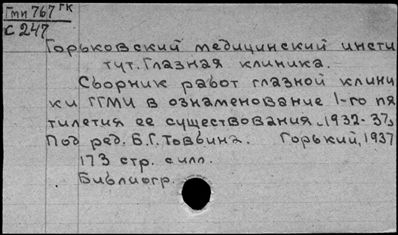 Гми 767 ГК
С 247
Горьковский медицинский инсти
тут. Глазная клиника.
Сборник работ глазной клини
ки ГГМИ в ознаменование 1-го пя
тилетия ее существования. 1932-37.
Под ред. Б.Г. Товбина. Горький, 1937
173 стр. с илл.
Библиогр.